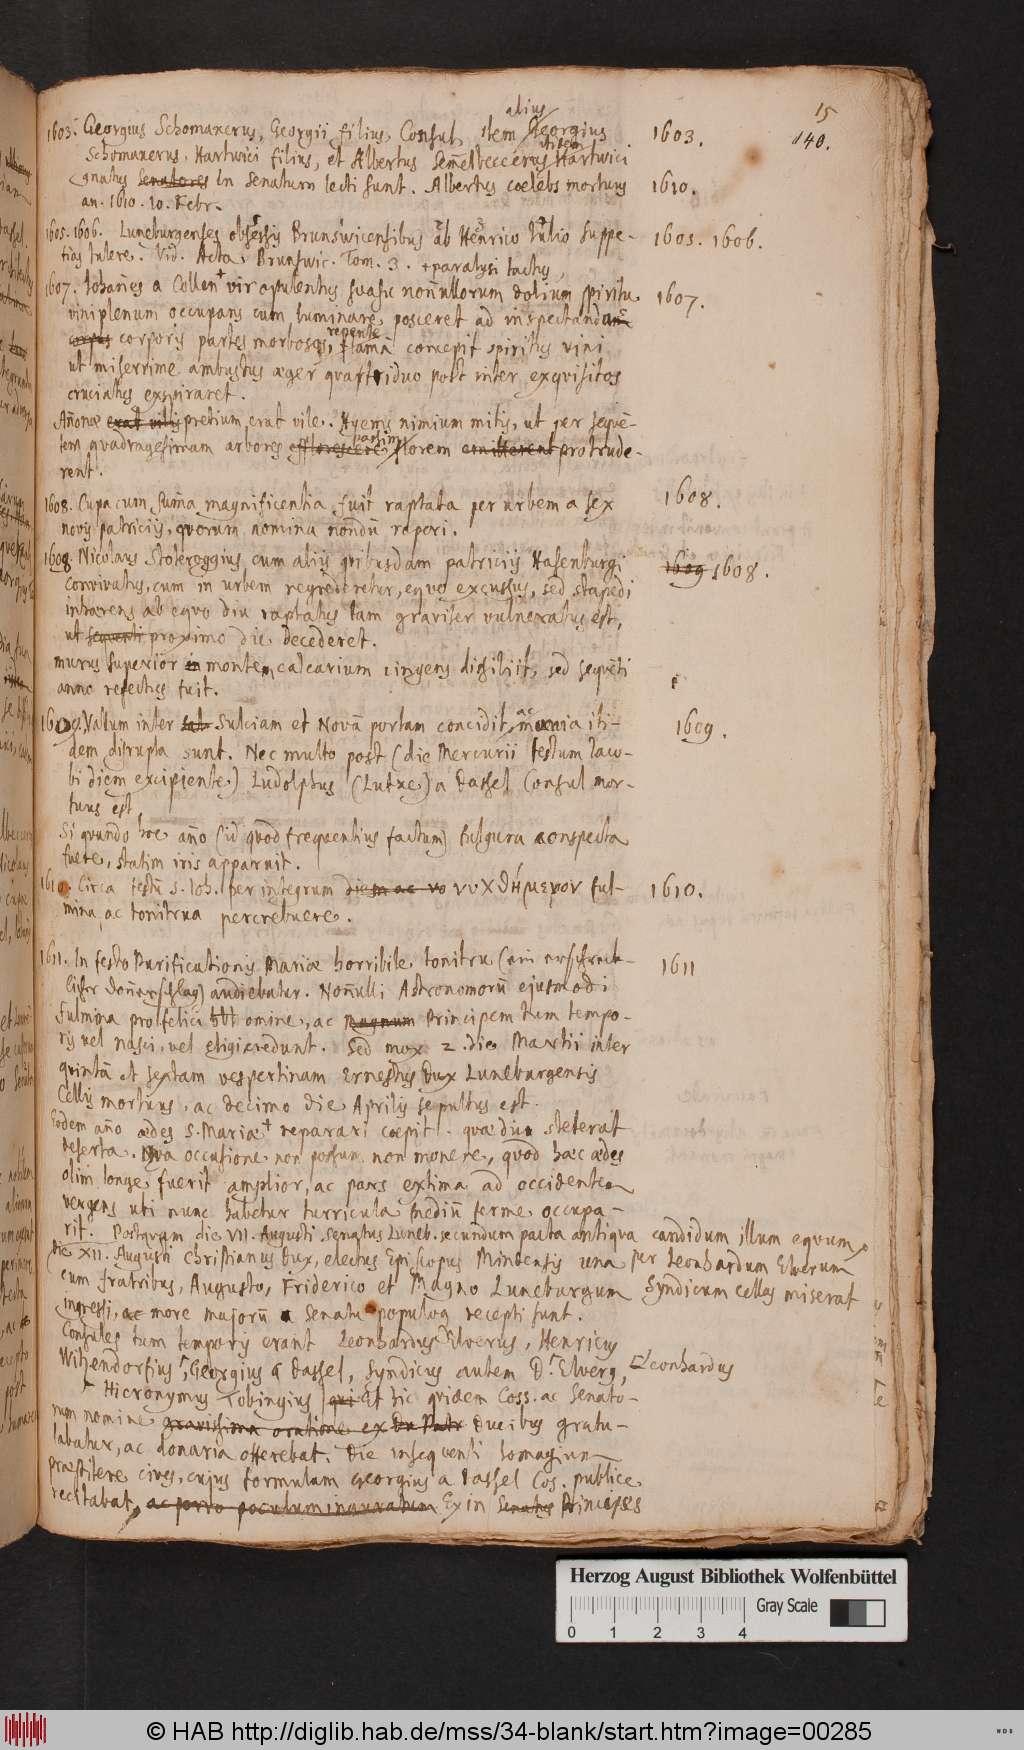 15
140.
alius
1603. Georgius Schomakerus, Georgii filius, Consul, item Georgius 1603.
Schomakerus, Hartwici filius, et Albertus Semelbeccerus Hartwici
gnatus Senatores in Senatum lecti sunt. Albertus coelebs mortuus 1610.
an. 1610. 10. Febr.
1605. 1606. Luneburgenses obsessis Brunswicensibus ab Henrico Iulio suppe- 1605. 1606.
tias tulere. Vid. Acta Brunswic. Tom. 3. + paralysi tactus,
1607. Iohan̄es a Collen + vir opulentus suasu non̄ullorum dolium spiritu 1607.
vini plenum occupans cum luminare posceret ad inspectandas
corpus corporis partes morbosas, repente flam̄ā concepit spiritus vini
ut miserrime ambustus aeger quatriduo post inter exquisitos
cruciatus exspiraret.
An̄onae erat vilis pretium erat vile. Hyems nimium mitis, ut per sequē-
tem quadragesimam arbores efflorescere passim florem emitterent protrude-
rent.
1608. Cupa cum sum̄a magnificentia fuit raptata per urbem a sex 1608.
novis patriciis, quorum nomina nondū reperi.
1608. Nicolaus Stoteroggius cum aliis quibusdam patriciis Hasenburgi 1609 1608.
convivatus, cum in urbem regrederetur, equo excussus, sed stapedi
inhaerens ab equo diu raptatus tam graviter vulneratus est,
ut sequenti proximo die decederet.
murus superior in montem calcarium cingens dissiliit, sed sequēti
anno refectus fuit.
1609. Vallum inter Sulciam et Novā portam concidit, ac moenia iti- 1609.
dem disrupta sunt. Nec multo post (die Mercurii festum Iaco-
bi diem excipiente) Ludolphus (Lutke) a Dassel Consul mor-
tuus est.
Si quando hoc an̄o (id quod frequentius factum) fulgura conspecta
fuere, statim iris apparuit.
1610. Circa festū S. Ioh. per integrum diem ac no νυχθήμερον ful- 1610.
mina ac tonitrua percrebuere.
1611. In festo Purificationis Mariae horribile tonitru (ein erschreck- 1611
licher Don̄erschlag) audiebatur. Non̄ulli Astronomorū ejusmodi
fulmina pro felici omine, ac magnum Principem tum tempo-
ris vel nasci, vel eligi credunt. Sed mox 2. die Martii inter
quintā et sextam vespertinam Ernestus Dux Luneburgensis
Cellis mortuus, ac decimo die Aprilis sepultus est.
Eodem an̄o aedes S. Mariae + reparari coepit. quae diu steterat
deserta. Qua occasione non possum non monere, quod haec aedes
olim longe fuerit amplior, ac pars extima ad occidentem
vergens uti nunc habetur turricula mediū ferme occupa-
rit. Postquam die VII. Augusti, senatus Luneb. secundum pacta antiqua candidum illum equum
per Leonhardum Elverum
Syndicum Cellas miserat
die XII. Augusti Christianus Dux, electus Episcopus Mindensis una
cum fratribus, Augusto, Friderico et Magno Luneburgum
ingressi, ac more majorū a Senatu populoq recepti sunt.
Consules tum temporis erant Leonhardus Elverus, Henricus
Witzendorfius, Georgius a Dassel, Syndicus autem D. Elverg, Leonhardus
Hieronymus Tobingius qui Et hic quidem Coss. ac Senato-
rum nomine gravissima oratione ex Ducibus gratu-
labatur, ac donaria offerebat. Die insequenti homagium
praestitere cives, cujus formulam Georgius a Dassel Cos. publice
recitabat, ac porro poculum inauratum Exin Senatus Principes
Herzog August Bibliothek Wolfenbüttel
Gray Scale
0 1 2 3 4
© HAB http://diglib.hab.de/mss/34-blank/start.htm?image=00285
WDB